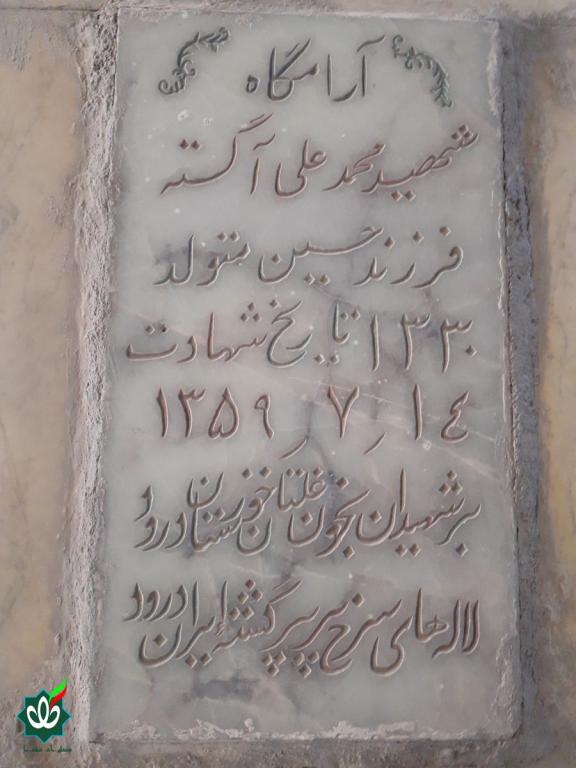 آرامگاه
شهید محمد علی آگسته
فرزند حسین متولد
۱۳۳۰ تاریخ شهادت
۱۳۵۹٫۷٫۱۴
بر شهیدان بخون غلتان خوزستان درود
لاله های سرخ پرپر گشتهٔ ایران درود